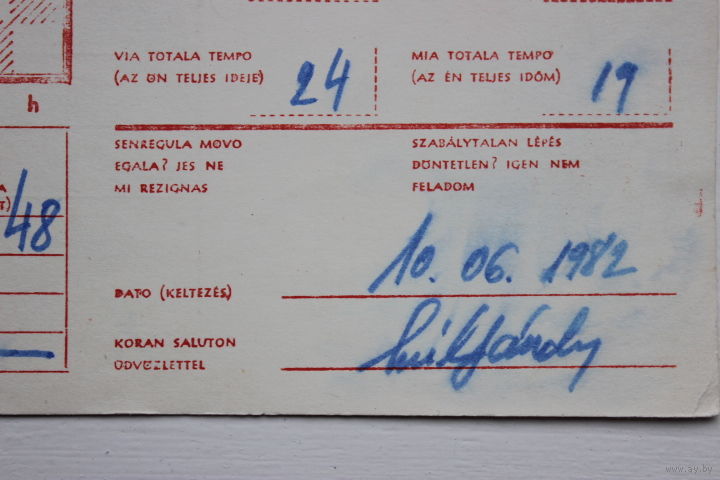 VIA TOTALA TEMPO
(AZ ÖN TELJES IDEJE)
24
MIA TOTALA TEMPO
(AZ ÉN TELJES IDŐM)
19
h
SENREGULA MOVO
EGALA? JES NE
MI REZIGNAS
SZABÁLYTALAN LÉPÉS
DÖNTETLEN? IGEN NEM
FELADOM
/48
DATO (KELTEZÉS)
10. 06. 1982
KORAN SALUTON
ÜDVÖZLETTEL
www.ay.by